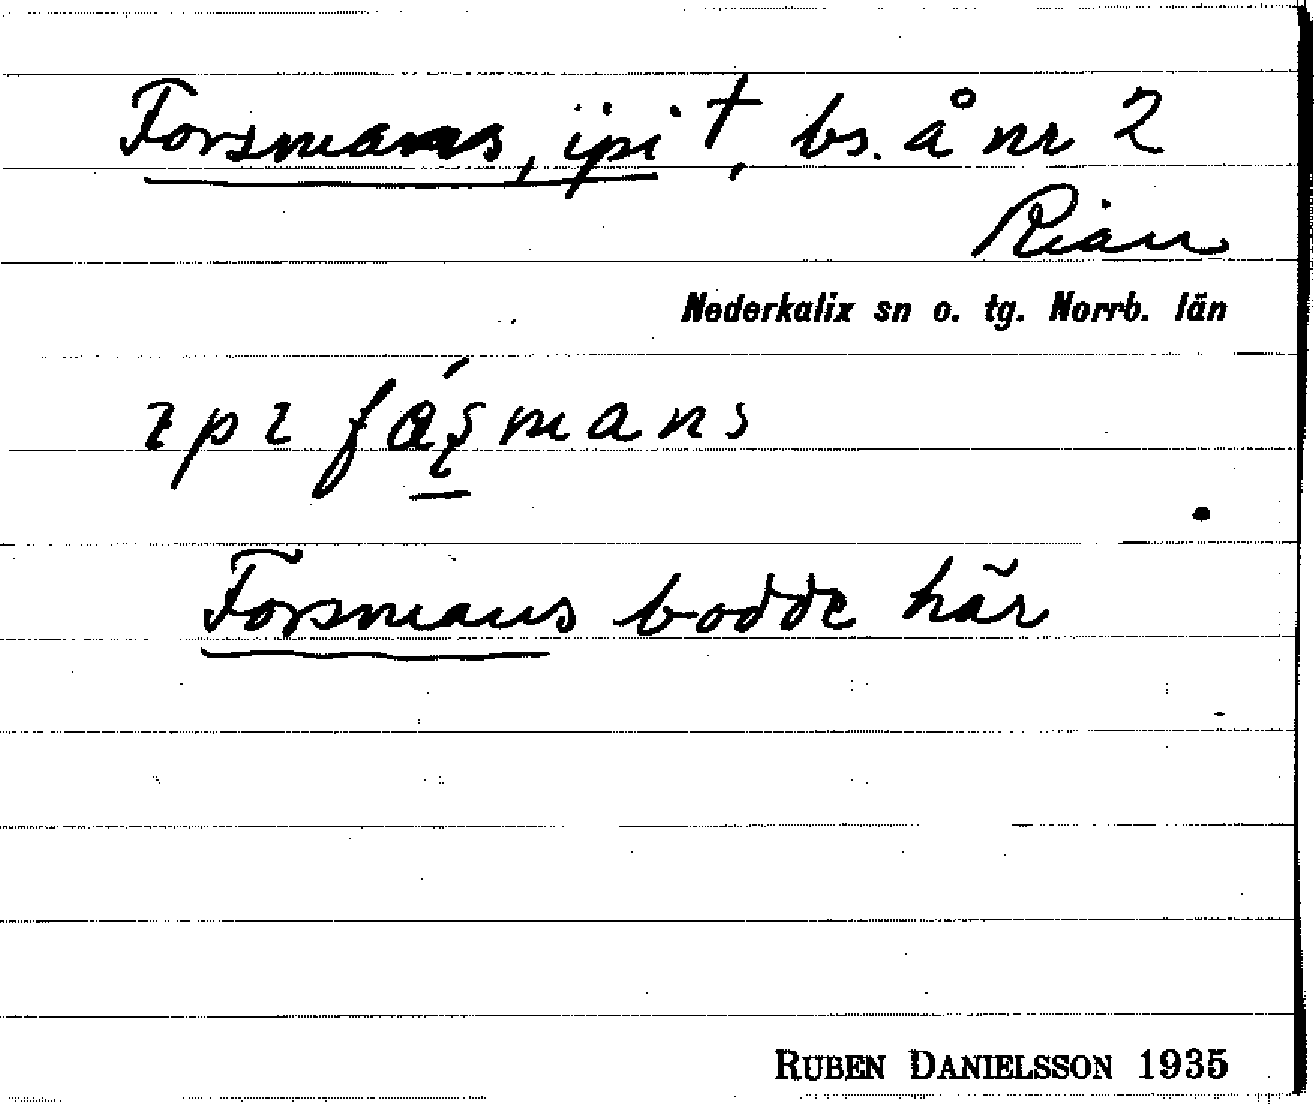 Forsmans, ipi †, bs. å nr 2
Rian
Nederkalix sn o. tg. Norrb. län
ɪpɪ fáʂmans
Forsmans bodde här
RUBEN DANIELSSON 1935